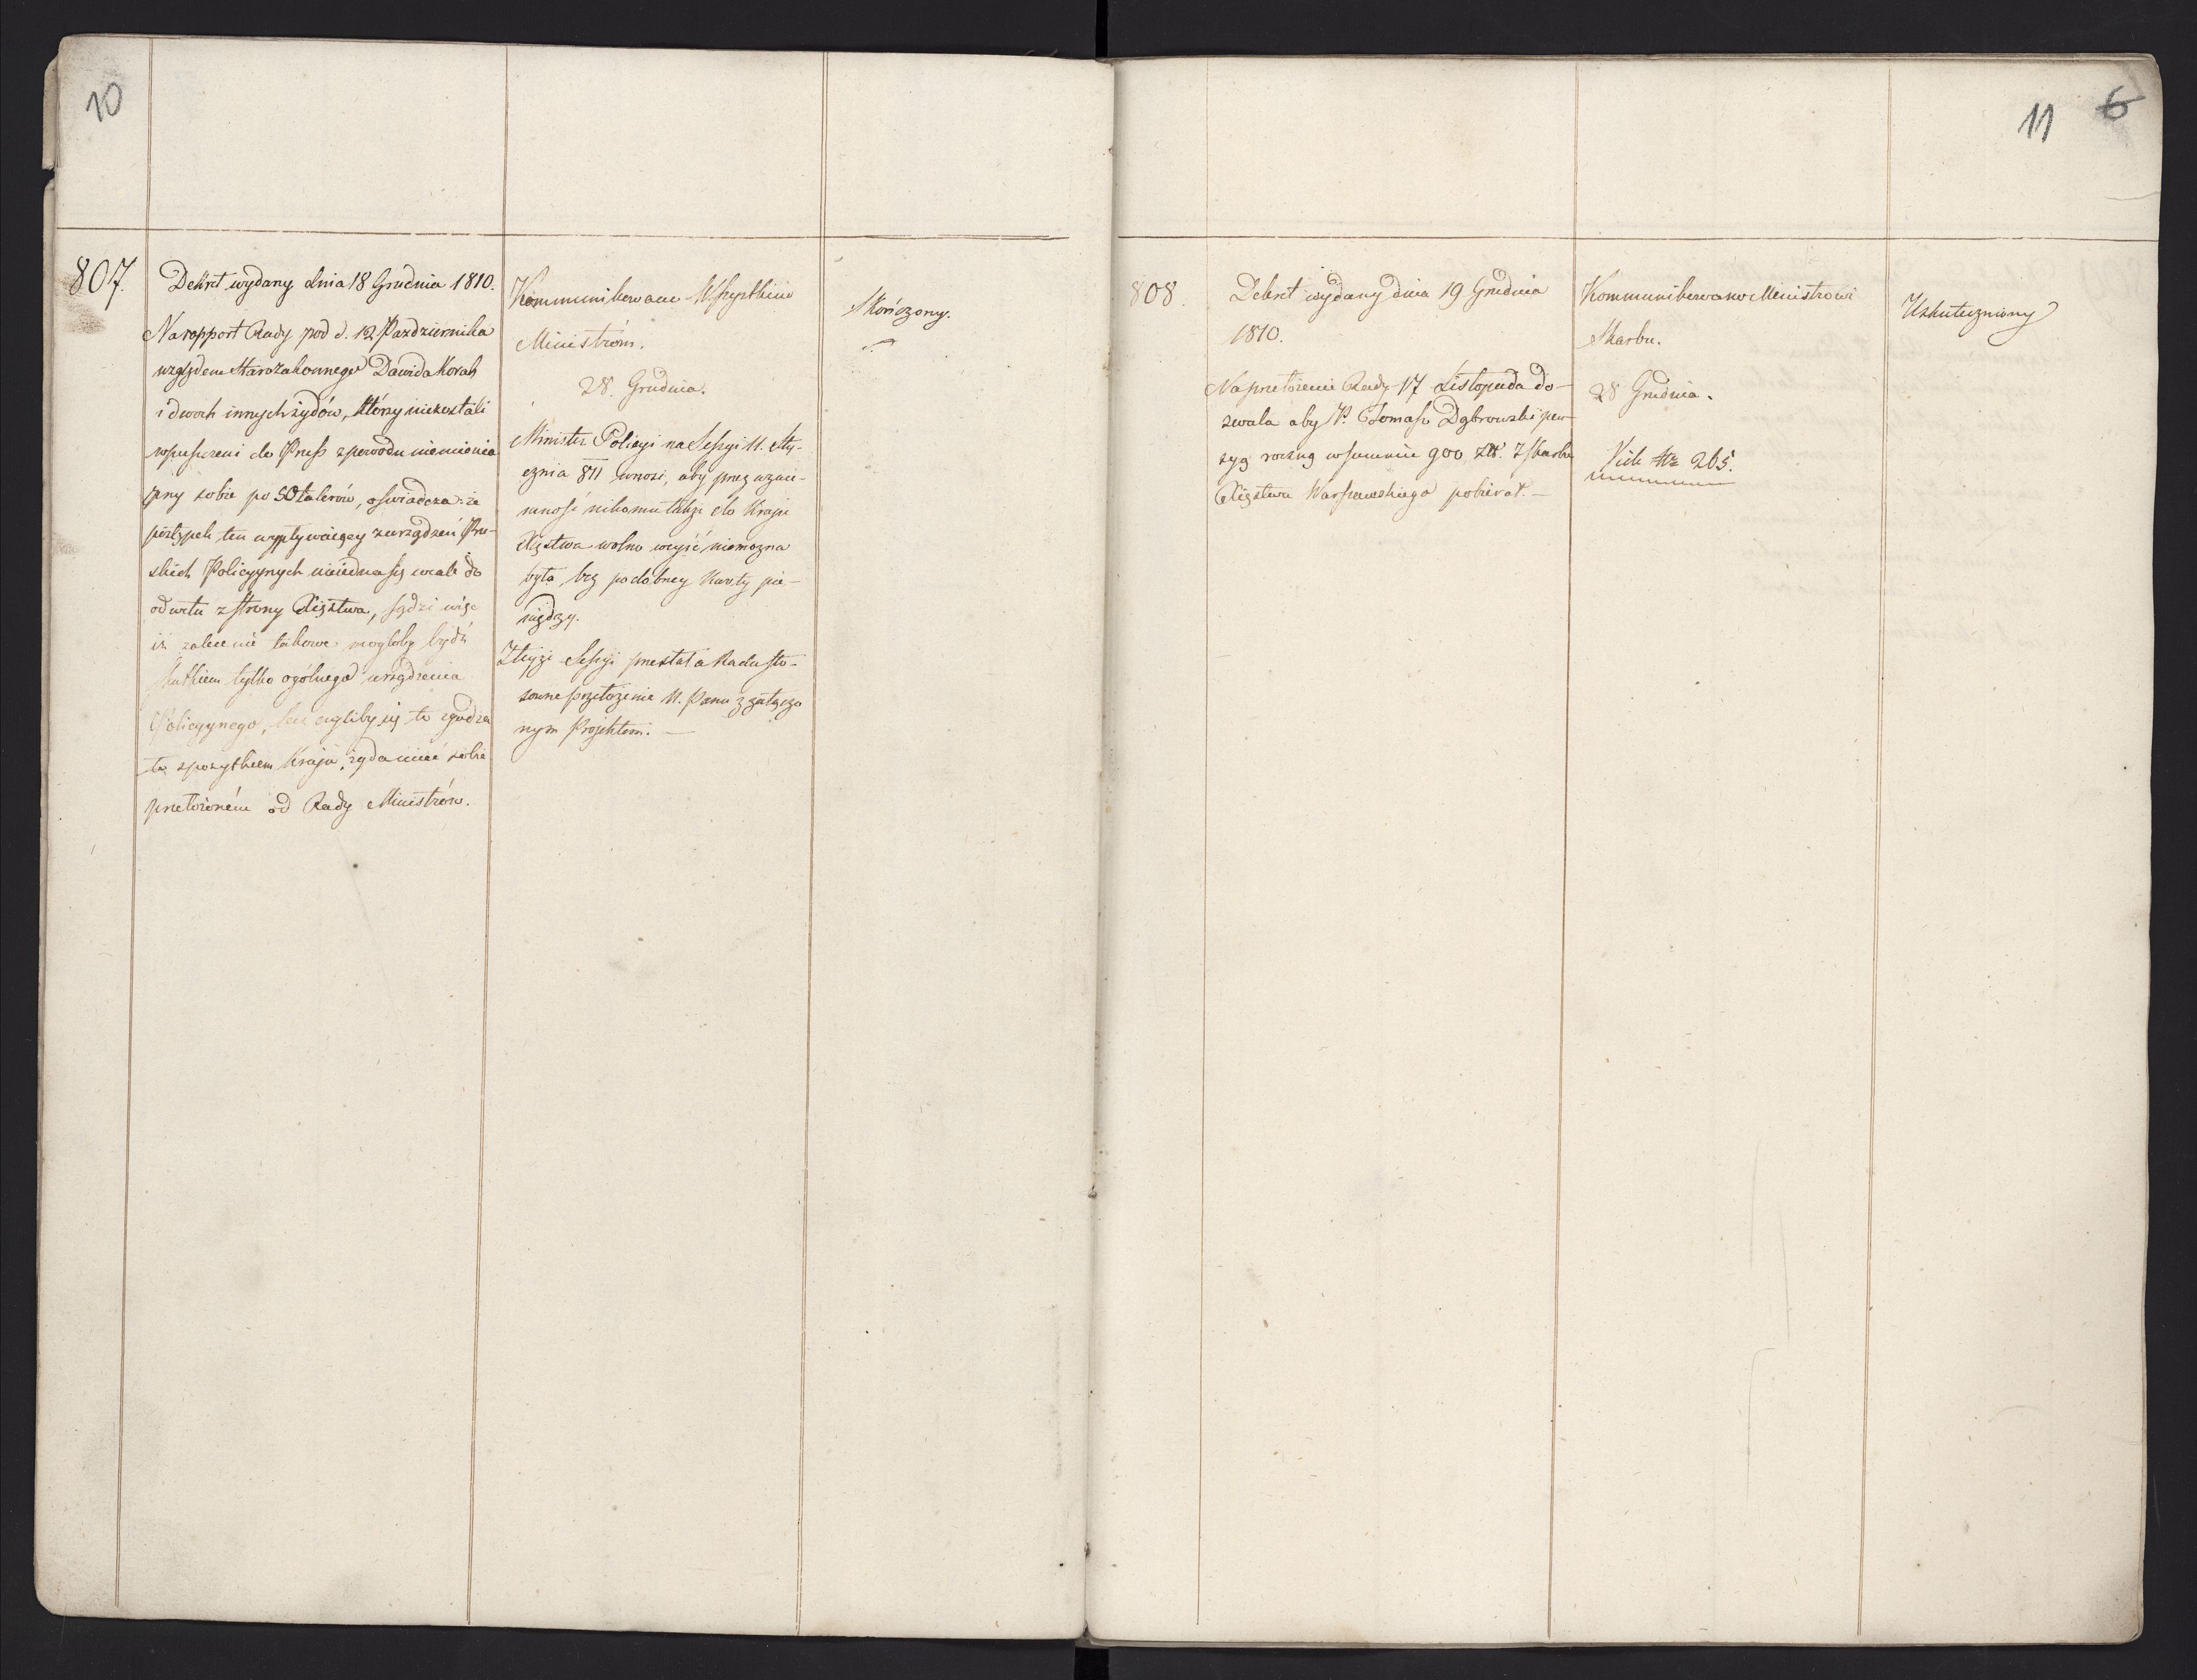 10
807.
Dekret wydany dnia 18 Grudnia 1810.
Na rapport Rady pod d. 12 Pazdziernika
względem Starozakonnego Dawida Korah
i dwóch innych żydów, którzy niezostali
wpuszczeni do Pruss z powodu niemienia
przy sobie po 50 talerów, oświadcza: że
postępek ten wypływaiący z urządzeń Pru-
skich Policyynych nieiedna się wcale do
odwetu z strony Xięstwa, sądzi więc
iż zalecenie takowe mogłoby bydź
skutkiem tylko ogólnego urządzenia
Policyynego, lecz czyliby się to zgadza
ło z pożytkiem Kraju, żąda mieć sobie
przełożoném od Rady Ministrów.
Kommunikowane Wszystkim
Ministróm.
28. Grudnia.
Minister Policyi na Sessyi 11. Sty-
cznia 811 wnosi, aby przez wzaie-
mność nikomu także do Kraju
Xięstwa wolno weyść niemożna
było, bez podobney kwoty pie-
niędzy.
Z teyże Sessyi przesłała Rada sto-
sowne przełożenie N. Panu z załączo
nym Projektem. —
Skończony.
11 6
808.
Dekret wydany dnia 19 Grudnia
1810.
Na przełożenie Rady 17 Listopada do-
zwala aby P. Tomasz Dąbrowski pen-
syą roczną w summie 900 Złł. z Skarbu
Xięstwa Warszawskiego pobierał. —
Kommunikowano Ministrowi
Skarbu.
28 Grudnia.
Vide Nr 265.
Uskuteczniony